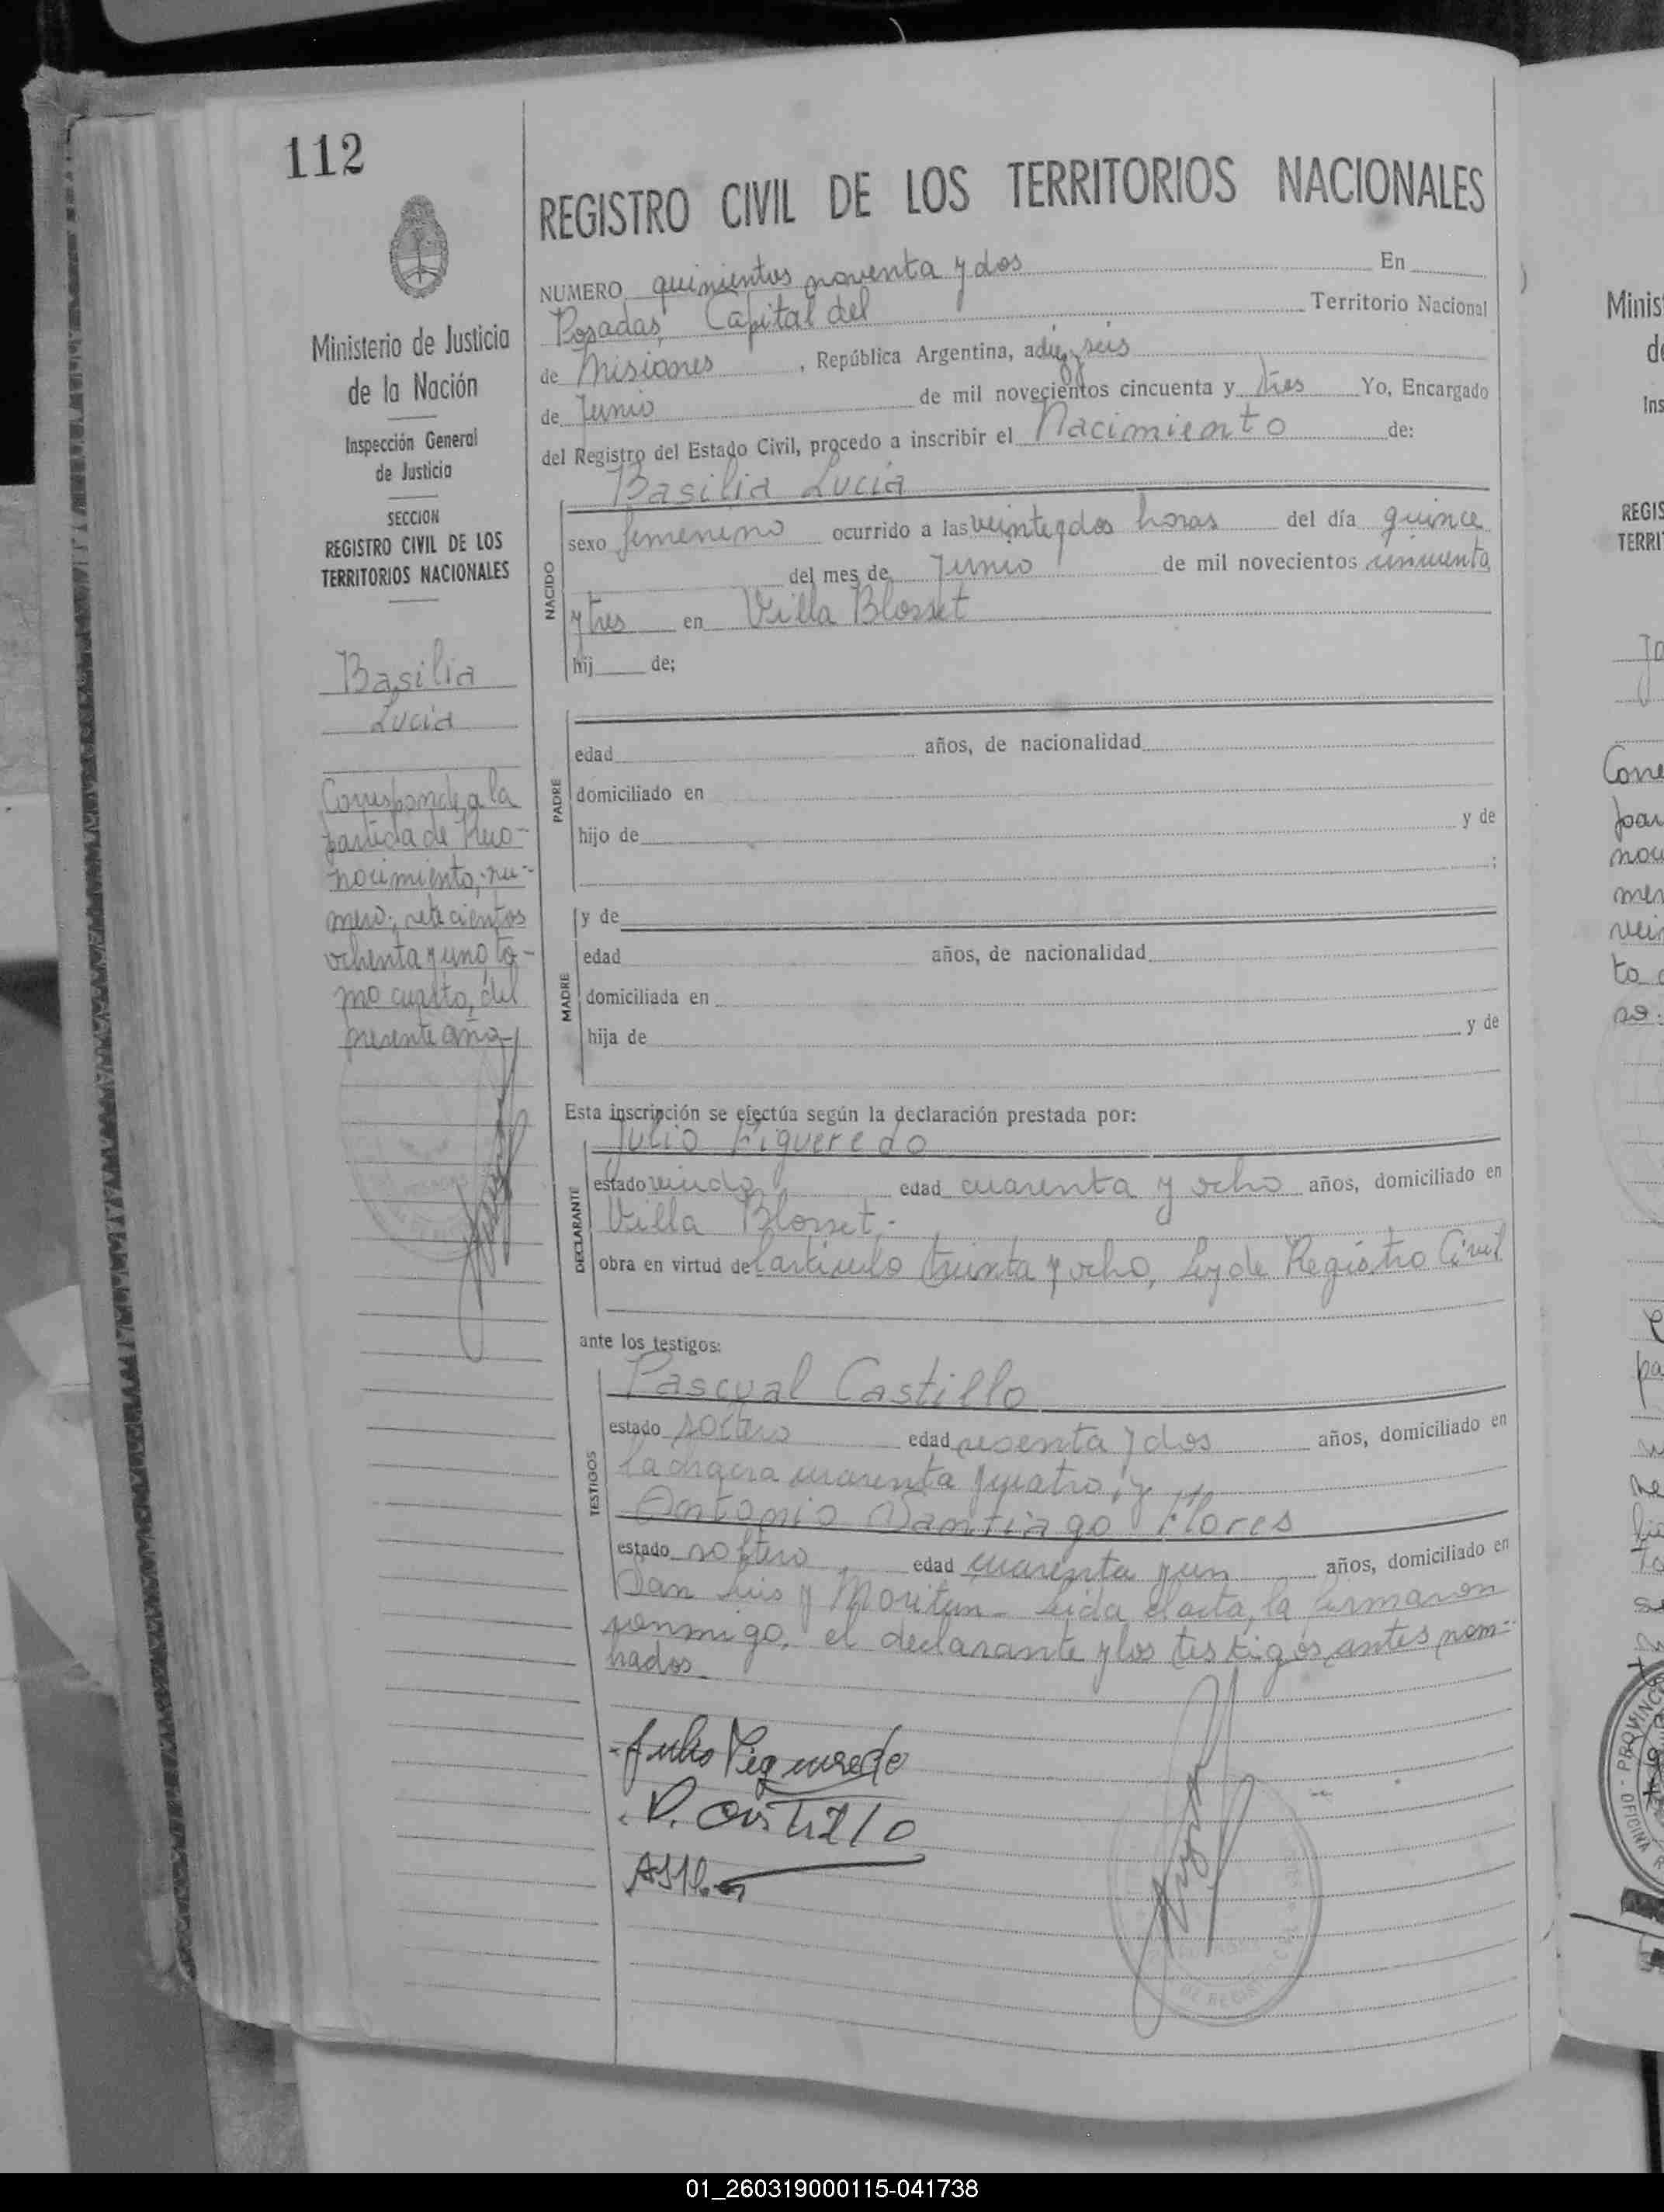 112
REGISTRO CIVIL DE LOS TERRITORIOS NACIONALES
Ministerio de Justicia
de la Nación
Inspección General
de Justicia
SECCION
REGISTRO CIVIL DE LOS
TERRITORIOS NACIONALES
Basilia
Lucia
Corresponde a la
partida de Reco-
nocimiento, nu-
mero; setecientos
ochenta y uno, to-
mo cuarto, del
presente año
NUMERO quinientos noventa y dos En
Posadas, Capital del Territorio Nacional
de Misiones, República Argentina, a diez y seis
de Junio de mil novecientos cincuenta y tres Yo, Encargado
del Registro del Estado Civil, procedo a inscribir el Nacimiento de:
NACIDO
Basilia Lucia
sexo femenino ocurrido a las veinte y dos horas del día quince
del mes de Junio de mil novecientos cincuenta
y tres en Villa Blosset
hij de;
PADRE
edad años, de nacionalidad
domiciliado en
hijo de y de
;
MADRE
y de
edad años, de nacionalidad
domiciliada en
hija de y de
Esta inscripción se efectúa según la declaración prestada por:
DECLARANTE
Julio Figueredo
estado viudo edad cuarenta y ocho años, domiciliado en
Villa Blosset.-
obra en virtud del articulo treinta y ocho, Ley de Registro Civil
ante los testigos:
TESTIGOS
Pascual Castillo
estado soltero edad sesenta y dos años, domiciliado en
cuarenta y cuatro, y
Antonio Santiago Flores
estado soltero edad cuarenta y un años, domiciliado en
San Luis y Moritan. Leida el acta, la firmaron
conmigo, el declarante y los testigos antes nom-
brados.
Julio Figueredo
P. Castillo
01_260319000115-041738
Minis
REGIS
TERRI